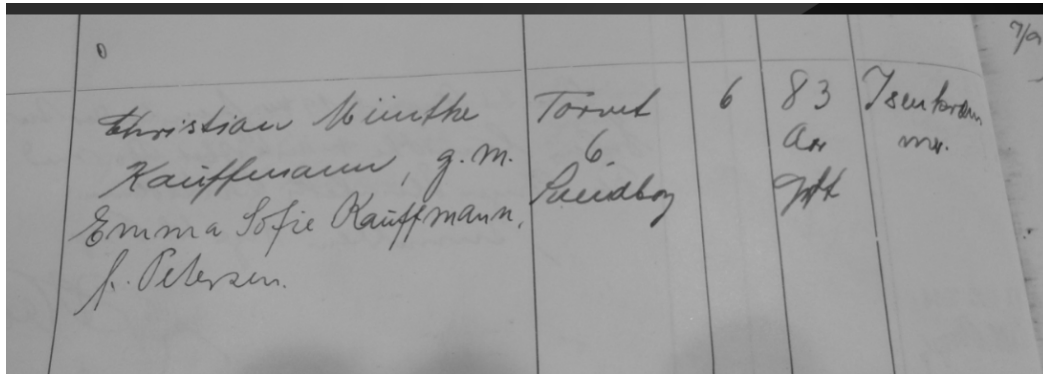 Christian Münthe
Kauffmann, g.m.
Emma Sofie Kauffmann,
f. Petersen.
Torvet
6.
6
83
Aar
Gift
Isenkræm